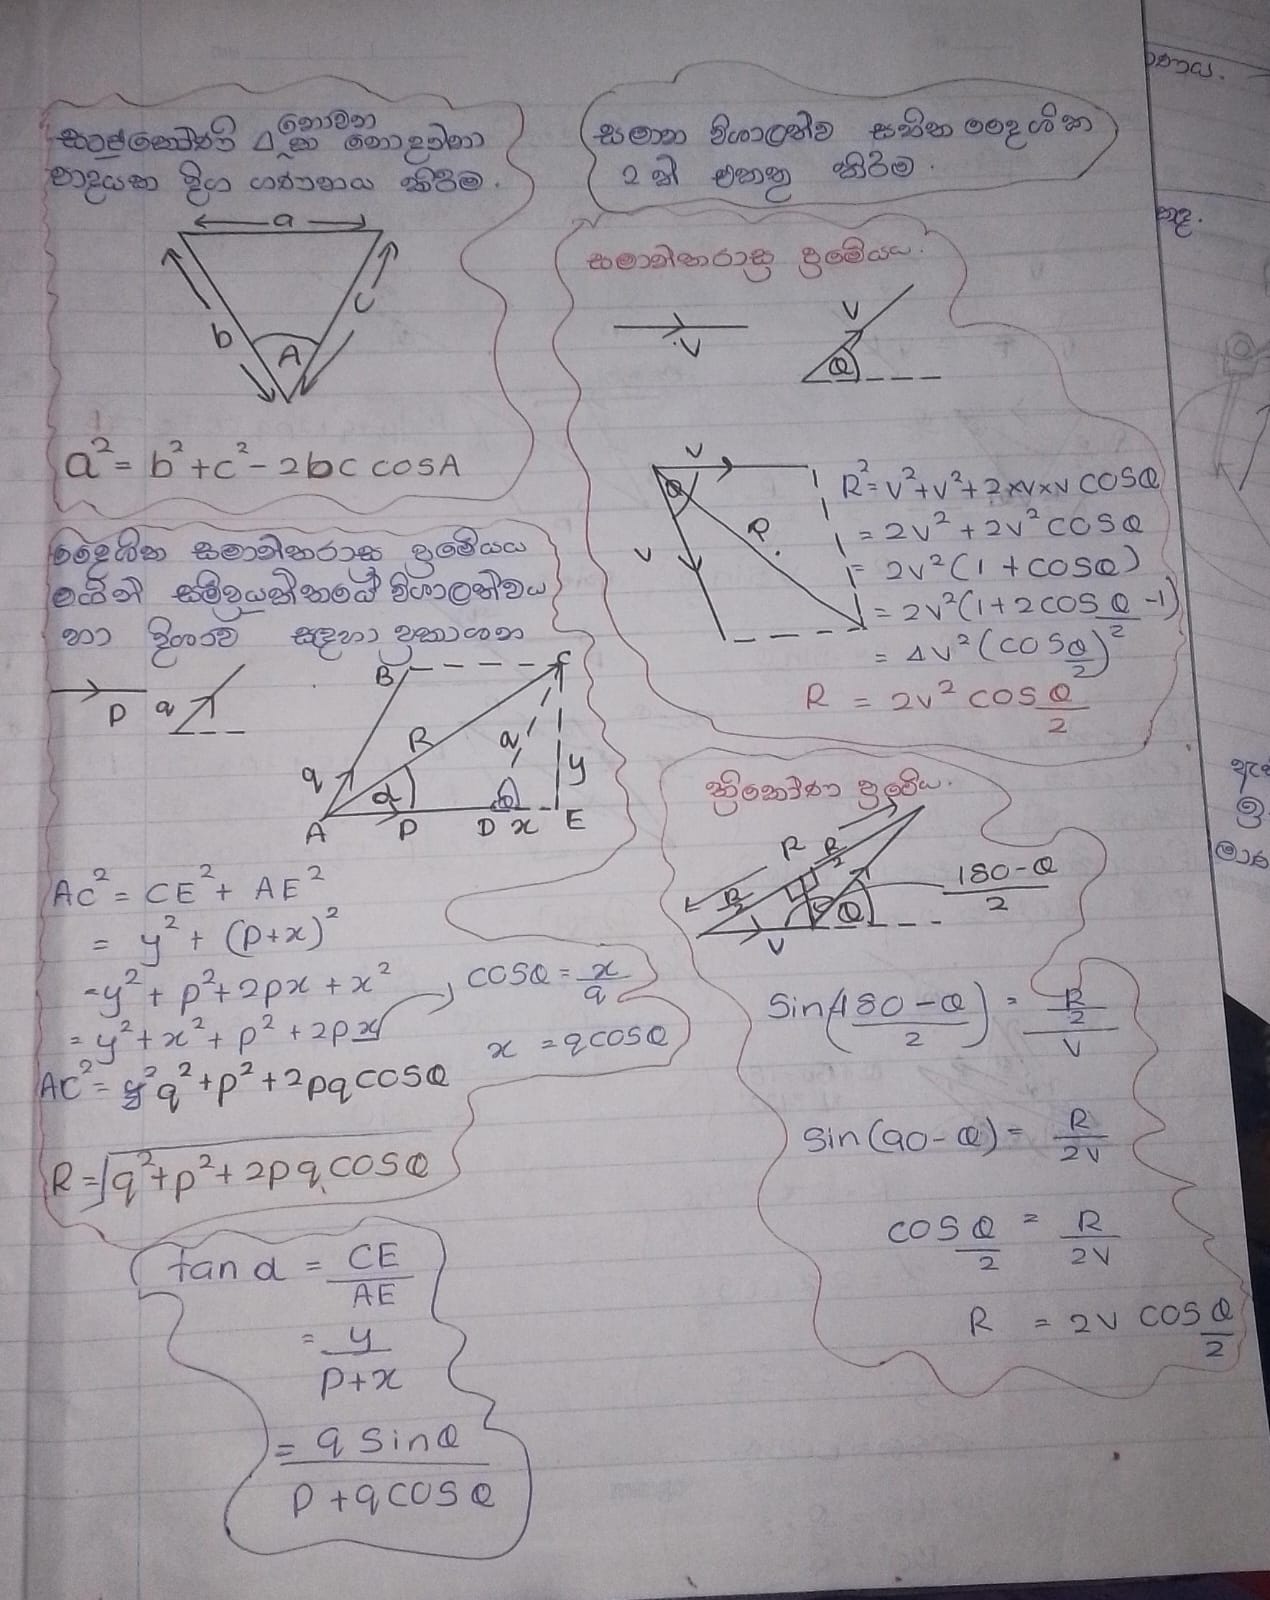 සෘජුකෝණී නොවන Δ ක නොදන්නා
පාදයක දිග ගණනය කිරීම.
a
b
c
A
a² = b² + c² - 2bc cosA
දෛශික සමාන්තරාස්‍ර ප්‍රමේයය
මගින් සම්ප්‍රයුක්තයේ විශාලත්වය
හා දිශාව සඳහා ප්‍රකාශන
P
q
B
C
R
q
q
y
α
θ
A
P
D
x
E
AC² = CE² + AE²
= y² + (p+x)²
= y² + p² + 2px + x²
= y² + x² + p² + 2px
cosθ = x/q
x = q cosθ
AC² = q² + p² + 2pq cosθ
R = √q² + p² + 2pq cosθ
tan α = CE/AE
= y/p+x
= q sinθ/p + q cosθ
සමාන විශාලත්ව සහිත දෛශික
2 ක් එකතු කිරීම.
සමාන්තරාස්‍ර ප්‍රමේයය.
V
V
θ
V
θ
V
R
R² = V² + V² + 2×V×V COSθ
= 2V² + 2V² COSθ
= 2V² (1 + COSθ)
= 2V² (1 + 2COS θ/2 - 1)
= 4V² (COS θ/2)²
R = 2V² COS θ/2
ත්‍රිකෝණ ප්‍රමේය.
R
R/2
R/2
V
θ
180-θ/2
Sin(180-θ/2) = R/2/V
Sin(90-θ) = R/2V
COS θ/2 = R/2V
R = 2V COS θ/2